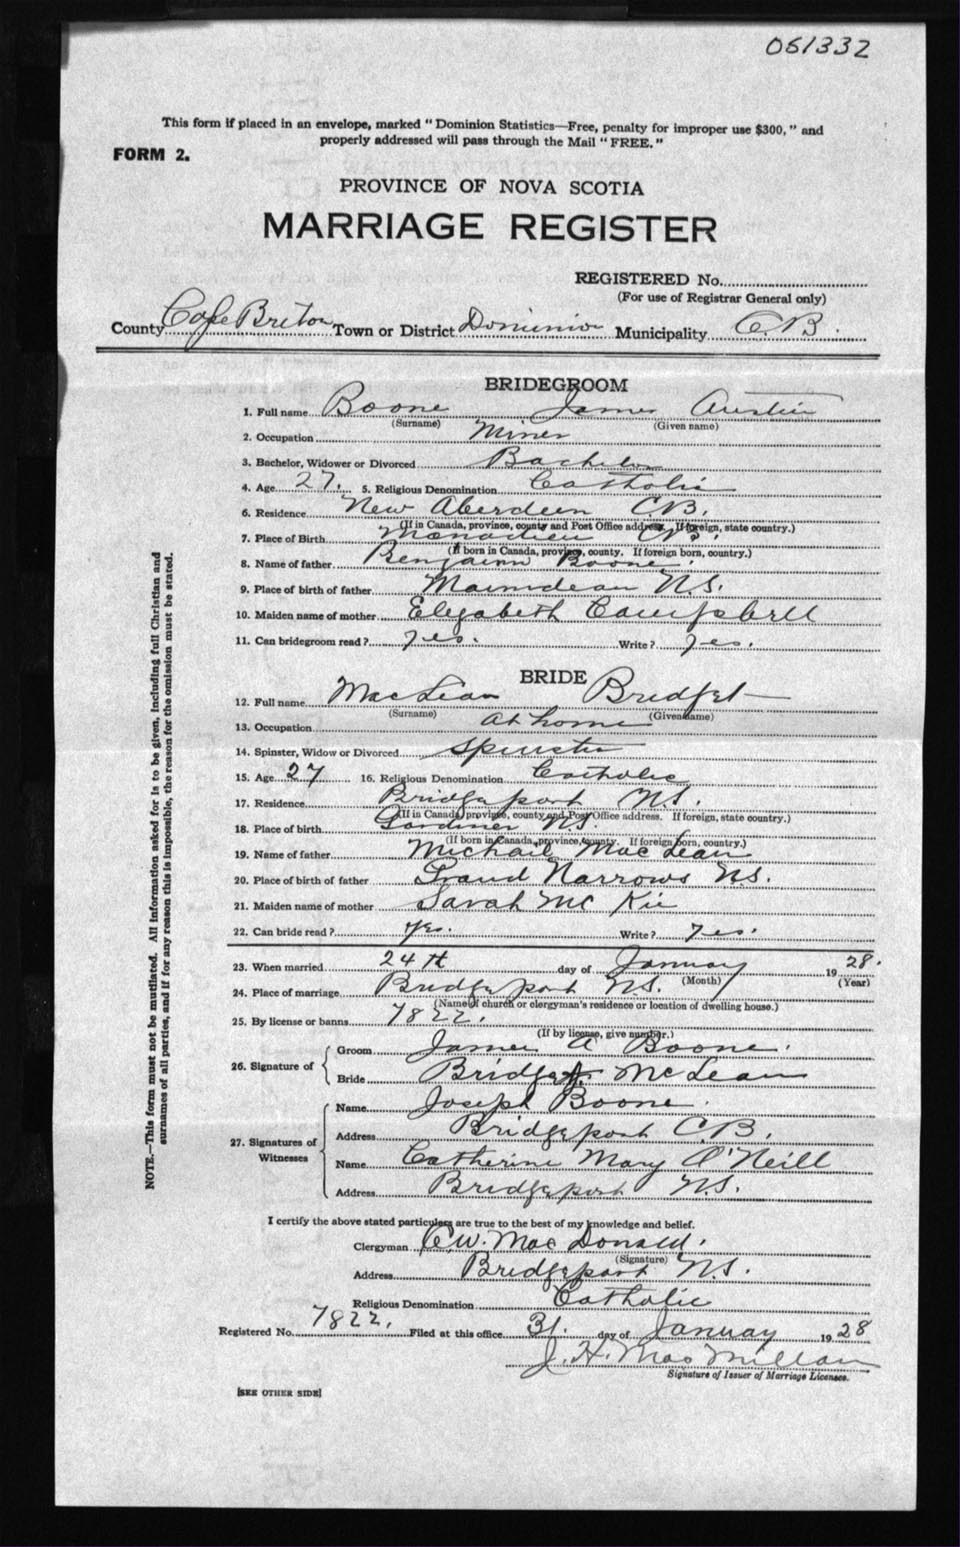 061332
This form if placed in an envelope, marked " Dominion Statistics—Free, penalty for improper use $300, " and
properly addressed will pass through the Mail " FREE. "
FORM 2.
PROVINCE OF NOVA SCOTIA
MARRIAGE REGISTER
REGISTERED No.
(For use of Registrar General only)
County Cape Breton Town or District Dominion Municipality C.B.
BRIDEGROOM
1. Full name Boone James Austin
(Surname) (Given name)
2. Occupation Miner
3. Bachelor, Widower or Divorced Bachelor
4. Age 27. 5. Religious Denomination Catholic
6. Residence New Aberdeen C.B.
(If in Canada, province, county and Post Office address. If foreign, state country.)
7. Place of Birth C.B.
(If born in Canada, province, county. If foreign born, country.)
8. Name of father Benjamin Boone.
9. Place of birth of father N.S.
10. Maiden name of mother Elizabeth Campbell
11. Can bridegroom read? yes. Write? yes.
BRIDE
12. Full name MacLean Bridget
(Surname) (Given name)
13. Occupation at home
14. Spinster, Widow or Divorced Spinster
15. Age 27 16. Religious Denomination Catholic
17. Residence Bridgeport N.S.
(If in Canada, province, county and Post Office address. If foreign, state country.)
18. Place of birth Gardiner N.S.
(If born in Canada, province, county. If foreign born, country.)
19. Name of father Michael MacLean
20. Place of birth of father Grand Narrows N.S.
21. Maiden name of mother Sarah McKie
22. Can bride read? yes. Write? yes.
23. When married 24th day of January 1928.
(Month) (Year)
24. Place of marriage Bridgeport N.S.
(Name of church or clergyman's residence or location of dwelling house.)
25. By license or banns 7822.
(If by license, give number.)
26. Signature of
Groom James A Boone.
Bride Bridget McLean
27. Signatures of Witnesses
Name Joseph Boone.
Address Bridgeport C.B.
Name Catherine Mary O'Neill
Address Bridgeport N.S.
I certify the above stated particulars are true to the best of my knowledge and belief.
Clergyman C.W. MacDonald.
(Signature)
Address Bridgeport N.S.
Religious Denomination Catholic
Registered No. 7822. Filed at this office 31. day of January 1928
J. H. MacMillan
Signature of Issuer of Marriage Licenses.
[SEE OTHER SIDE]
NOTE.—This form must not be mutilated. All information asked for is to be given, including full Christian and
surnames of all parties, and if for any reason this is impossible, the reason for the omission must be stated.